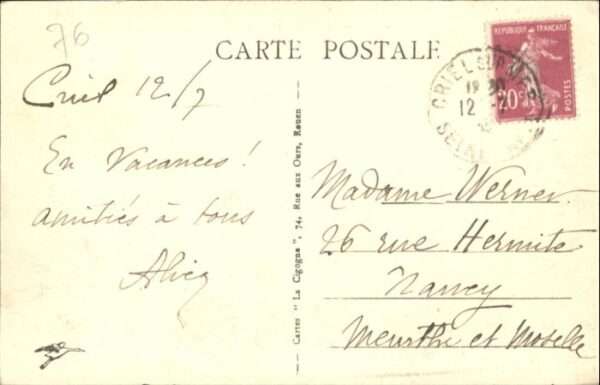 76
CARTE POSTALE
RÉPUBLIQUE FRANÇAISE
20c
POSTES
CRIEL SUR MER
12
SEINE
Criel 12/7
En Vacances !
amitiés à tous
Alice
Cartes "La Cigogne", 74, Rue aux Ours, Rouen
Madame Werner
26 rue Hermite
Nancy
Meurthe et Moselle